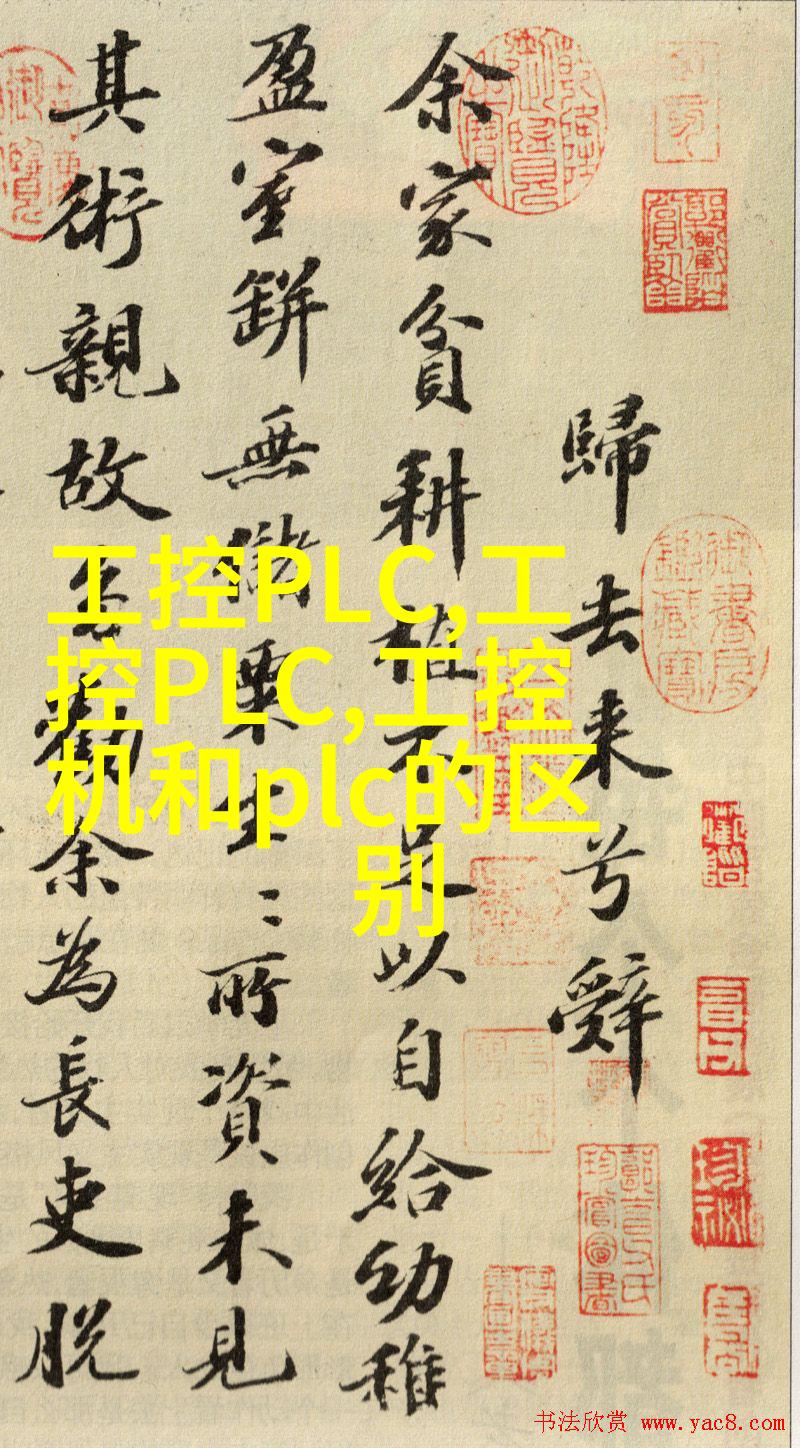 歸去来兮辭
余家貧耕植不足以自給幼稚
盈室缾無儲粟生〻所資未見
其術親故多勸余為長吏脱
工控PLC,工
控PLC,工控
机和plc的区
别
书法欣赏 www.yac8.com